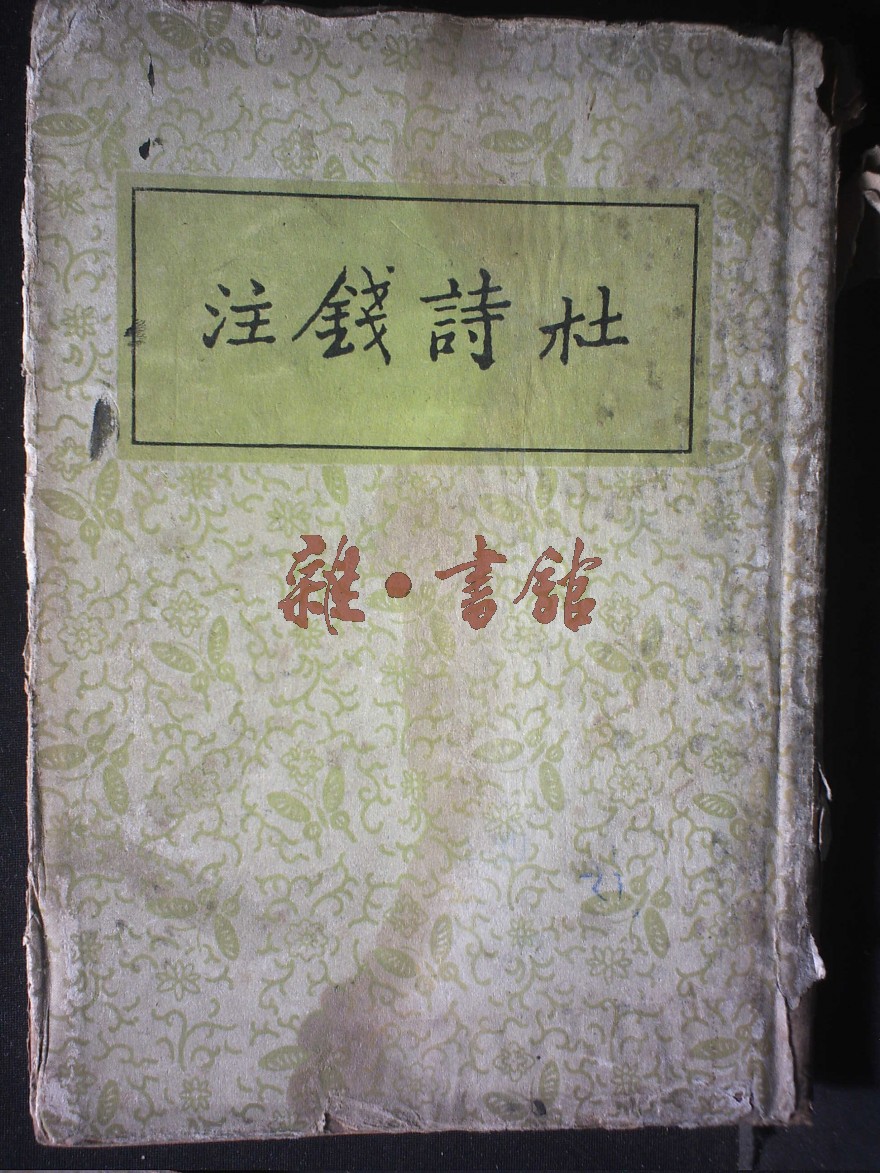 杜詩錢注
雜·書館